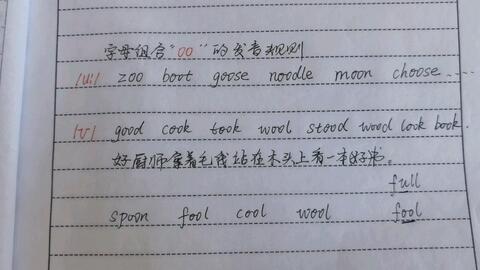 字母组合"oo"的发音规则
/u:/ zoo boot goose noodle moon choose ....
/ʊ/ good cook took wool stood wood look book.
好厨师拿着毛线站在木头上看一本好书。
full
spoon fool cool wool fool